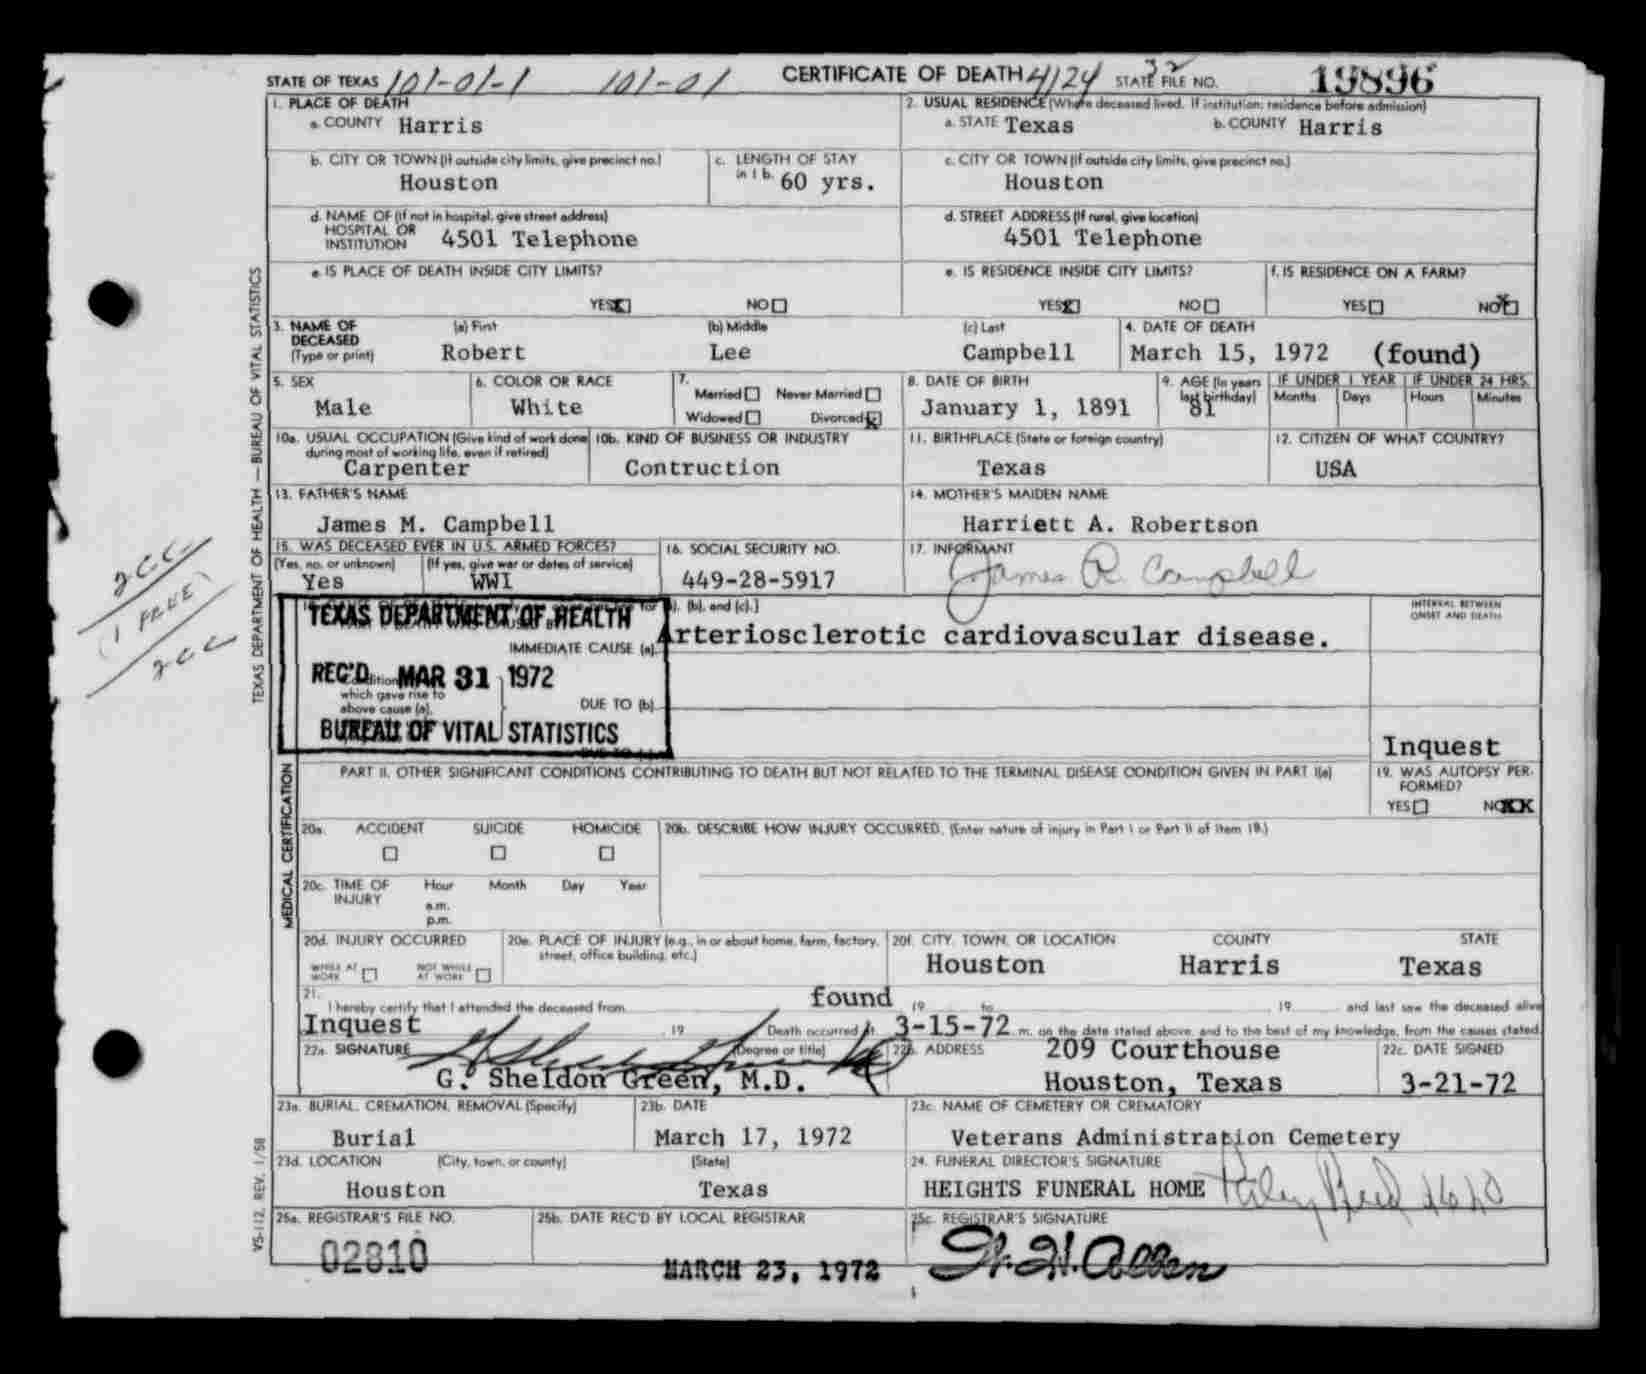 STATE OF TEXAS 101-01-1 101-01 CERTIFICATE OF DEATH 4124 STATE FILE NO. 32 19896
1. PLACE OF DEATH
a. COUNTY Harris
2. USUAL RESIDENCE (Where deceased lived. If institution: residence before admission)
a. STATE Texas b. COUNTY Harris
b. CITY OR TOWN (If outside city limits, give precinct no.)
Houston
c. LENGTH OF STAY
in 1 b. 60 yrs.
c. CITY OR TOWN (If outside city limits, give precinct no.)
Houston
d. NAME OF (If not in hospital, give street address)
HOSPITAL OR
INSTITUTION 4501 Telephone
d. STREET ADDRESS (If rural, give location)
4501 Telephone
e. IS PLACE OF DEATH INSIDE CITY LIMITS?
YES X NO
e. IS RESIDENCE INSIDE CITY LIMITS?
YES X NO
f. IS RESIDENCE ON A FARM?
YES NO X
3. NAME OF
DECEASED
(Type or print)
(a) First (b) Middle (c) Last
Robert Lee Campbell
4. DATE OF DEATH
March 15, 1972 (found)
5. SEX
Male
6. COLOR OR RACE
White
7.
Married Never Married
Widowed Divorced X
8. DATE OF BIRTH
January 1, 1891
9. AGE (In years
last birthday)
81
IF UNDER 1 YEAR IF UNDER 24 HRS.
Months Days Hours Minutes
10a. USUAL OCCUPATION (Give kind of work done
during most of working life, even if retired)
Carpenter
10b. KIND OF BUSINESS OR INDUSTRY
Contruction
11. BIRTHPLACE (State or foreign country)
Texas
12. CITIZEN OF WHAT COUNTRY?
USA
13. FATHER'S NAME
James M. Campbell
14. MOTHER'S MAIDEN NAME
Harriett A. Robertson
15. WAS DECEASED EVER IN U.S. ARMED FORCES?
(Yes, no, or unknown) (If yes, give war or dates of service)
Yes WWI
16. SOCIAL SECURITY NO.
449-28-5917
17. INFORMANT
James R. Campbell
for (a), (b), and (c).]
INTERVAL BETWEEN
ONSET AND DEATH
TEXAS DEPARTMENT OF HEALTH
REC'D MAR 31 1972
BUREAU OF VITAL STATISTICS
IMMEDIATE CAUSE (a) Arteriosclerotic cardiovascular disease.
Conditions
which gave rise to
above cause (a),
DUE TO (b)
Inquest
PART II. OTHER SIGNIFICANT CONDITIONS CONTRIBUTING TO DEATH BUT NOT RELATED TO THE TERMINAL DISEASE CONDITION GIVEN IN PART I(a)
19. WAS AUTOPSY PER-
FORMED?
YES NO XX
20a. ACCIDENT SUICIDE HOMICIDE
20b. DESCRIBE HOW INJURY OCCURRED. (Enter nature of injury in Part I or Part II of item 18.)
20c. TIME OF
INJURY
Hour Month Day Year
a.m.
p.m.
20d. INJURY OCCURRED
WHILE AT
WORK
NOT WHILE
AT WORK
20e. PLACE OF INJURY (e.g., in or about home, farm, factory,
street, office building, etc.)
20f. CITY, TOWN, OR LOCATION COUNTY STATE
Houston Harris Texas
21.
I hereby certify that I attended the deceased from found 19 to 19 and last saw the deceased alive
Inquest , 19 Death occurred at 3-15-72 m. on the date stated above, and to the best of my knowledge, from the causes stated.
22a. SIGNATURE (Degree or title)
G. Sheldon Green, M.D.
22b. ADDRESS 209 Courthouse
Houston, Texas
22c. DATE SIGNED
3-21-72
23a. BURIAL, CREMATION, REMOVAL (Specify)
Burial
23b. DATE
March 17, 1972
23c. NAME OF CEMETERY OR CREMATORY
Veterans Administration Cemetery
23d. LOCATION (City, town, or county) (State)
Houston Texas
24. FUNERAL DIRECTOR'S SIGNATURE
HEIGHTS FUNERAL HOME
25a. REGISTRAR'S FILE NO.
02810
25b. DATE REC'D BY LOCAL REGISTRAR
MARCH 23, 1972
25c. REGISTRAR'S SIGNATURE
TEXAS DEPARTMENT OF HEALTH — BUREAU OF VITAL STATISTICS
MEDICAL CERTIFICATION
VS-112, REV. 1/58
2CC
(1 FREE)
2CC